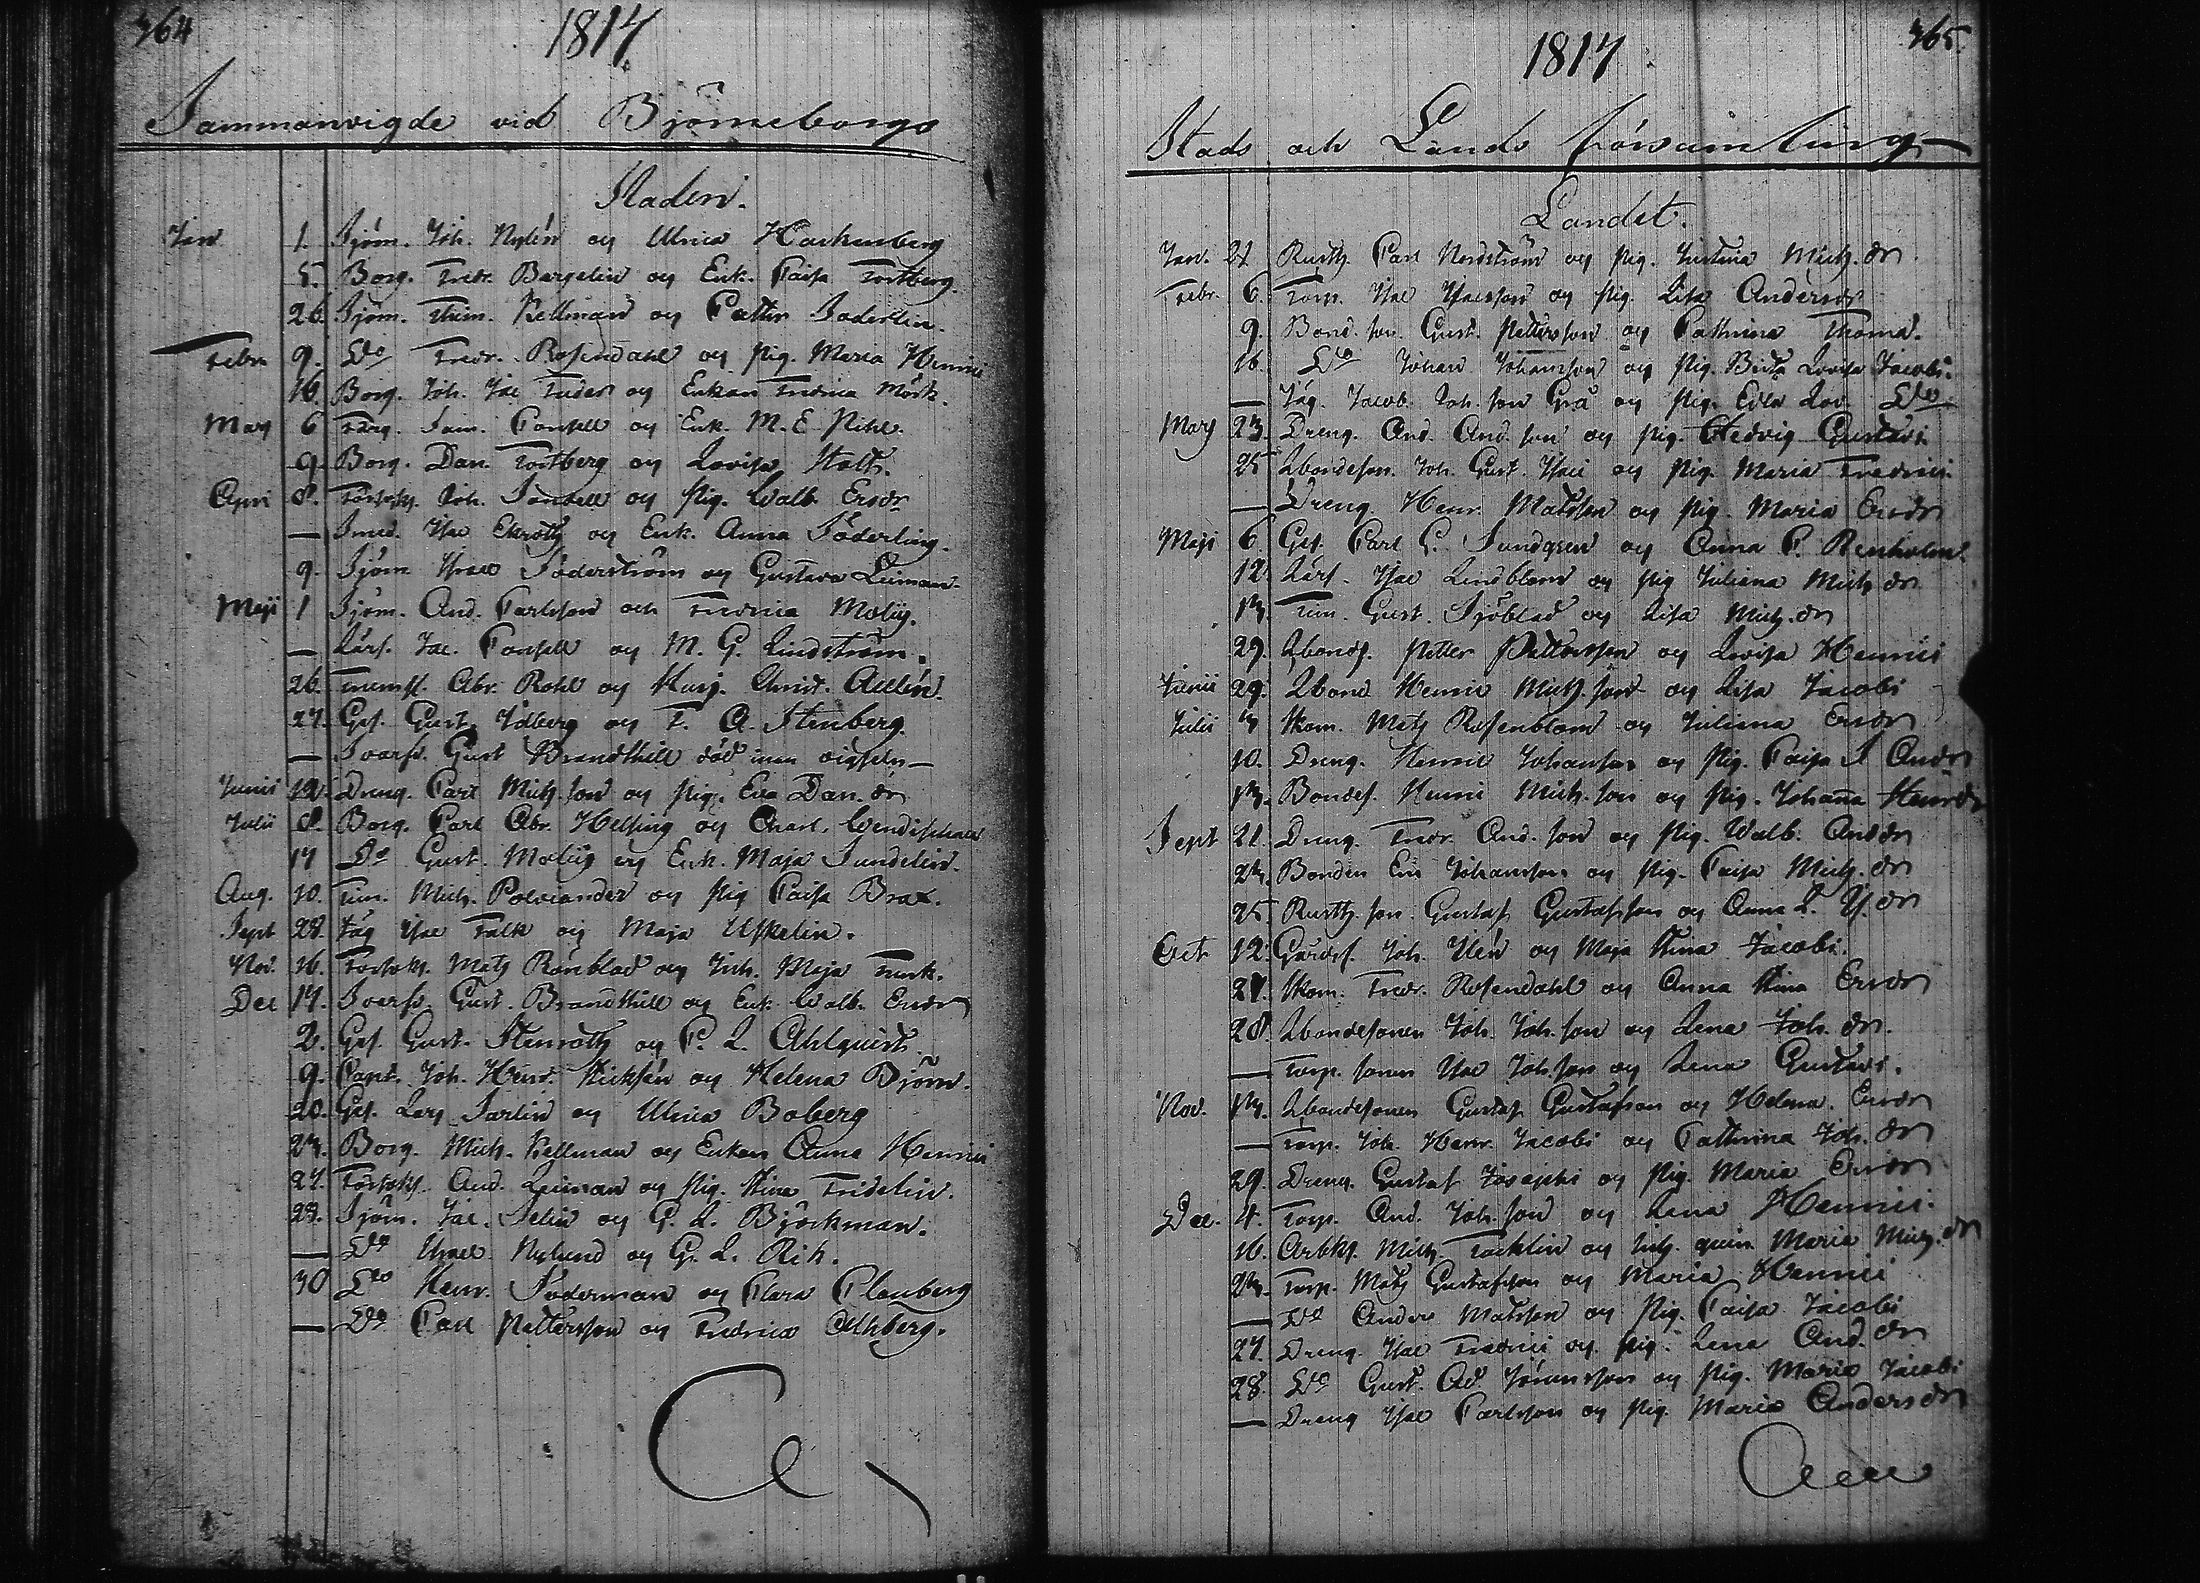 364
1817
Sammanvigde vid Björneborgs
Staden.
Jan. 1. Sjöm. Joh. Nylén og Ulrica Hackenberg
5. Borg. Fredr. Bergelin og Enk. Caisa Tortberg.
26. Sjöm. Kellman og Cathr. Soderlin.
Febr. 9. Do Fredr. Rosendahl og Pig. Maria Henrici
16. Borg. Joh. Jac og Enkan Fredrica Mörk.
Mars 6 Färg. Sam. Consell og Enk. M. E. Pihl.
9. Borg. Dan. Tortberg og Lovisa Stolt.
April 8. Joh. Sandell og Pig. Walb. Ersdr
— Smed. Isac Ekroth og Enk. Anna Söderling.
9. Sjöm Israel Söderström og Gustava Leiman.
Maji 1 Sjöm. And. Carlsson och Fredrica Moliis.
— Lärf. Jac. Consell og M. G. Lindström.
26. Abr. Rohl og Husj. Christ. Aelén.
27. Ges. Gust. Idberg og F. A. Stenberg.
— Svarfv. Gust Brandthill
Junii 12. Dreng. Carl Mich.son og Pig. Eva Dan.dr
Julii 8. Borg. Carl Abr. Helsing og Charl. Wendischena
17 Do Gust. Moliis og Enk. Maja Sundelin.
Aug. 10. Tim. Mich. Polviander og Pig Caisa Brax.
Sept 28. Isac Falk og Maja Uskelin.
Nov. 16. Mats Rönblad og Inh. Maja Turk.
Dec 17. Svarfv. Gust. Brandthill og Enk Walb. Ersdr
2. Ges. Gust. Stenroth og C. L. Ahlquist.
9. Capt. Joh. Henr. Kicksén og Helena Björn.
20. Ges. Lars Sarlin og Ulrica Boberg
24. Borg. Mich. Kellman og Enkan Anna Henrici
27. And. Leiman og Pig. Stina Fridelin.
28. Sjöm. Jac. Selin og G. L. Björkman.
— Do Israel Nylund og G. L. Rih.
30 Do Henr. Söderman og Clara Clenberg
— Do Carl Pettersson og Fredrica Ahlberg.
365.
1817
Stads och Lands församling
Landet.
Jan. 21 Rusth. Carl Nordström og Pig. Justina Mich.dr
Febr. 6. Torp. Isac Isacsson og Pig. Lisa Andersdr
9. Bond.son Gust. Pettersson og Cathrina Thoma.
16. Do Johan Johansson og Pig. Brita Lovisa Jacobi.
— Jäg. Jacob Joh.son Grä og Pig. Edla Lov. Do
Mars 23. Dreng. And. And.son og Pig. Hedvig Gustavi
25 Lbondeson. Joh. Gust. Isaci og Pig. Maria Fredrici.
— Dreng. Henr. Matsson og Pig. Maria Ersdr
Maji 6. Ges. Carl G. Sundgren og Anna C. Renholm.
12. Lärf. Isac Lindblom og Pig Juliana Mich.dr
14. Tim. Gust. Sjöblad og Lisa Mich.dr
29. Lbonds. Petter Pettersson og Lovisa Henrici
Junii 29. Lbond Henric Mich.son og Lisa Jacobi
Julii 4 Skom. Mats Rosenblom og Juliana Ersdr
10. Dreng. Henric Johansson og Pig. Caisa S Andr
14. Bondes. Henric Mich.son og Pig. Johana Henrdr
Sept 21. Dreng. Fredr. And.son og Pig. Walb. Andr
24. Bonden Eric Johansson og Pig. Caisa Mich.dr
25. Rusth.son Gustaf Gustafsson og Anna L.
Oct 12. Joh. Ulén og Maja Stina Jacobi.
21. Skom. Fredr. Rosendahl og Anna Stina Ersdr
28. Lbondesonen Joh. Joh.son og Lena Joh.dr.
— Torp.sonen Isac Joh.son og Lena Gustavi.
Nov. 14. Lbondesonen Gustaf Gustafsson og Helena Ersdr
— Torp. Joh. Henr. Jacobi og Cathrina Joh.dr
29. Dreng. Gustaf Josephi og Pig. Maria Ersdr
Dec. 4. Torp. And. Joh.son og Lena Henrici.
16. Arbks. Mich. Tacklin og Maria Mich.dr
24. Torp. Mats Gustafsson og Maria Henrici
— Do Anders Matsson og Pig. Caisa Jacobi
27. Dreng. Isac Fredrici og Pig. Lena And.dr
28. Do Gust. Ad. Jöransson og Pig. Maria Jacobi
— Dreng Isac Carlsson og Pig. Maria Andersdr